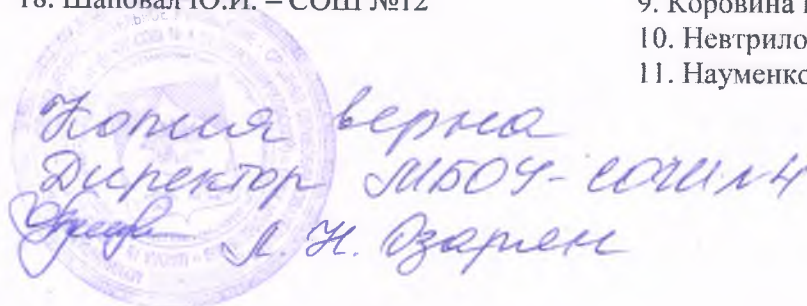 18. Шаповал Ю.И. – СОШ №12
9. Коровина
10. Невтрило
11. Науменко
Копия верна
Директор МБОУ-СОШ №4
Л. Н. Озарян